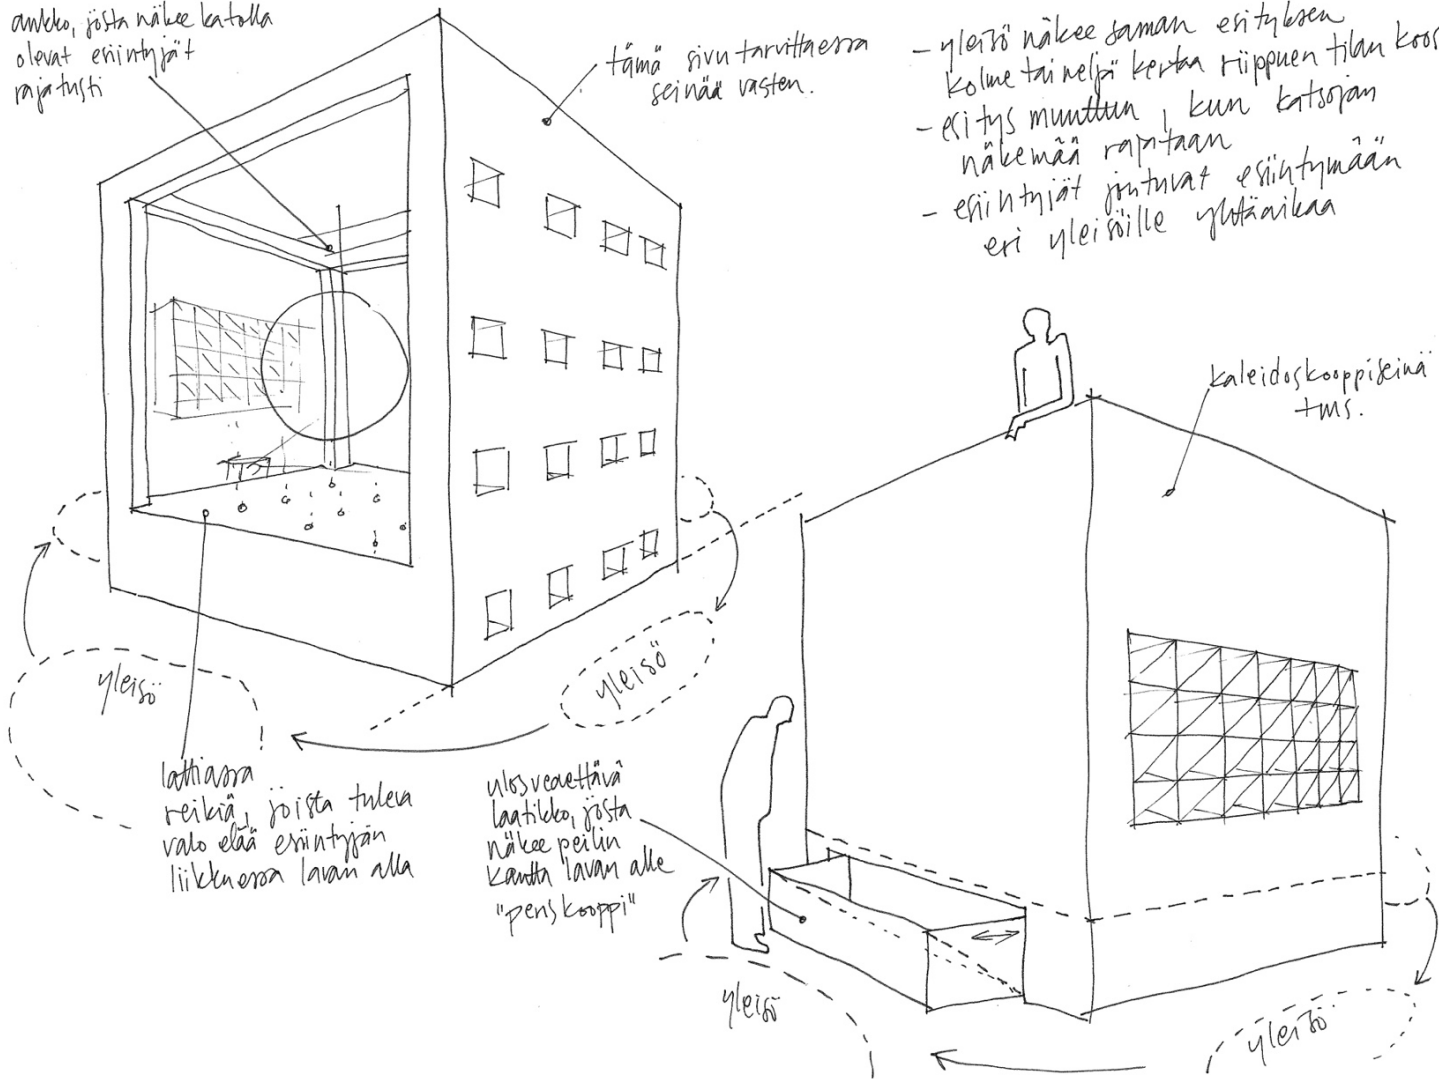 aukko, josta näkee katolla
olevat esiintyjät
rajatusti
tämä sivu tarvittaessa
seinää vasten.
- yleisö näkee saman esityksen
kolme tai neljä kertaa riippuen tilan koos
- esitys muuttuu, kun katsojan
näkemää rajataan
- esiintyjät joutuvat esiintymään
eri yleisöille yhtäaikaa
kaleidoskooppiseinä
tms.
yleisö
yleisö
lattiassa
reikiä, joista tuleva
valo elää esiintyjän
liikkuessa lavan alla
ulosvedettävä
laatikko, josta
näkee peilin
kautta lavan alle
"periskooppi"
yleisö
yleisö